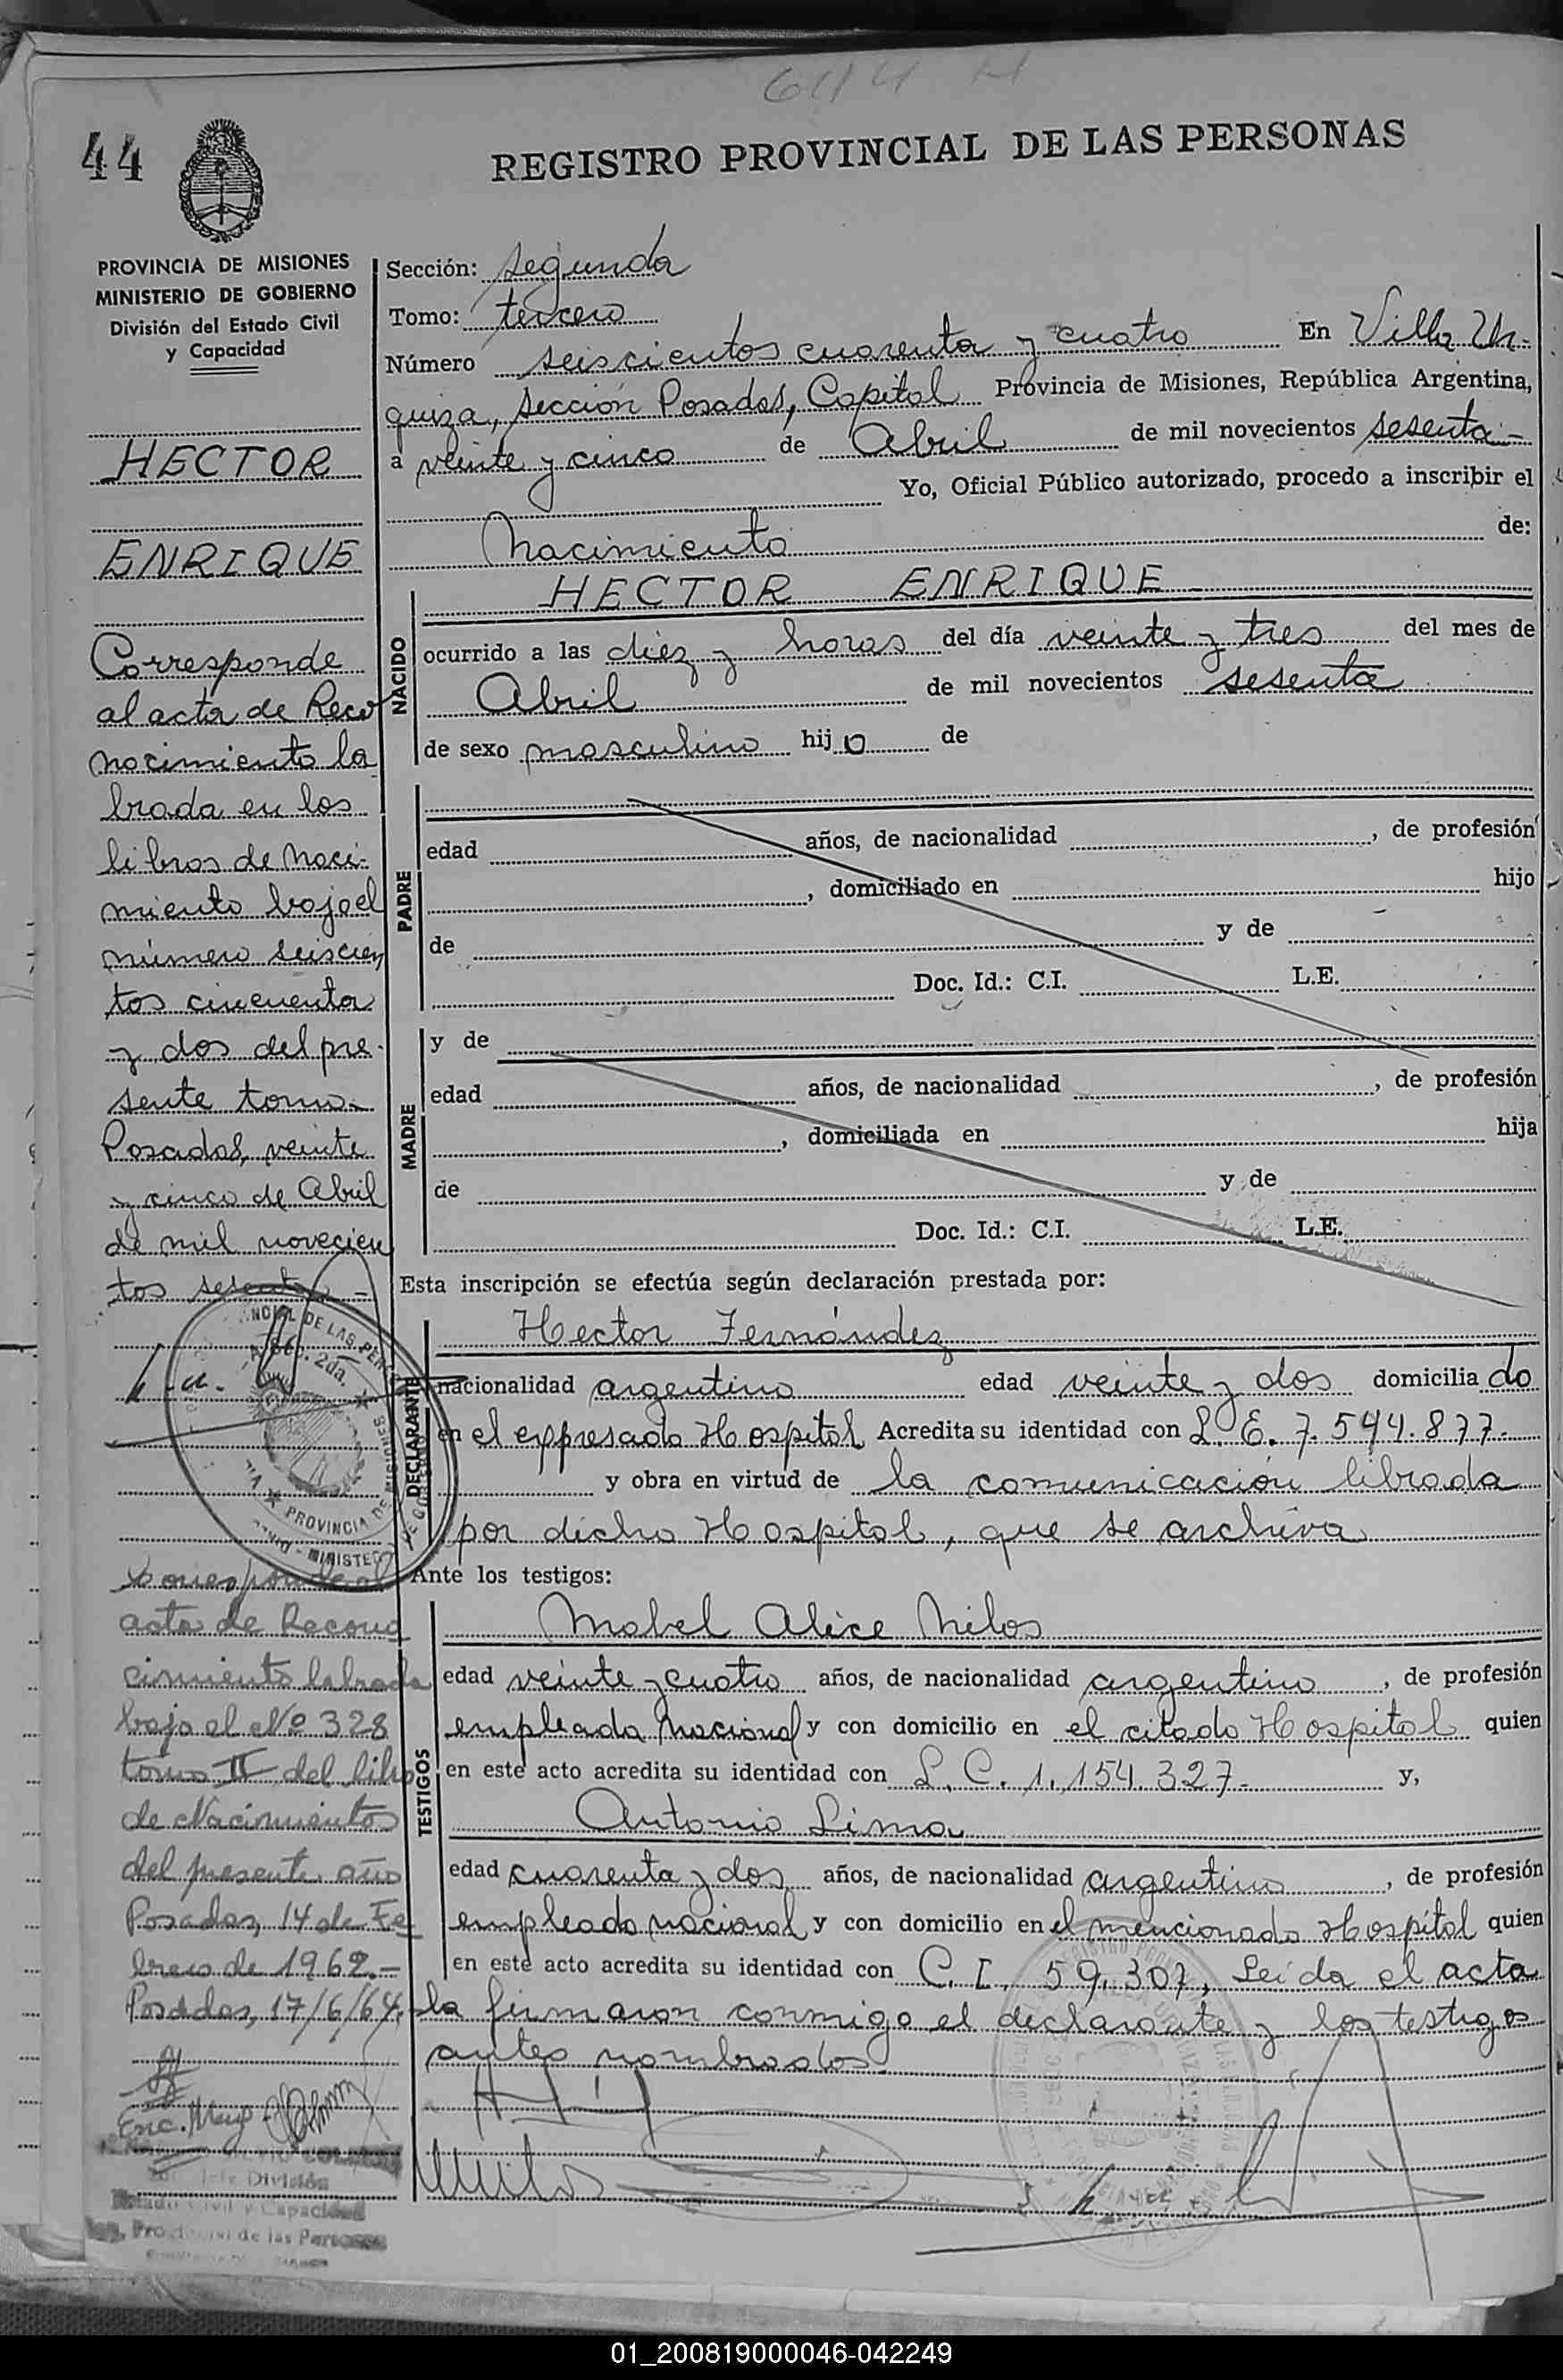 644 H
44
REGISTRO PROVINCIAL DE LAS PERSONAS
PROVINCIA DE MISIONES
MINISTERIO DE GOBIERNO
División del Estado Civil
y Capacidad
HECTOR
ENRIQUE
Corresponde
al acta de Reco
nocimiento la
brada en los
libros de naci-
miento bajo el
número seiscien
tos cincuenta
y dos del pre-
sente tomo.-
Posadas, veinte
y cinco de Abril
de mil novecien
tos sesenta -
Corresponde al
acta de Recono
cimiento labrada
bajo el Nº 328
tomo II del libro
de Nacimientos
del presente año
Posadas, 14 de Fe
brero de 1962.-
Posadas, 17/6/64.
Enc.
Jefe División
Estado Civil y Capacidad
Reg. Provincial de las Personas
Sección: segunda
Tomo: tercero
Número seiscientos cuarenta y cuatro En Villa Ur-
quiza, sección Posadas, Capital Provincia de Misiones, República Argentina,
a veinte y cinco de Abril de mil novecientos sesenta -
Yo, Oficial Público autorizado, procedo a inscribir el
Nacimiento de:
NACIDO
HECTOR ENRIQUE
ocurrido a las diez y horas del día veinte y tres del mes de
Abril de mil novecientos sesenta
de sexo masculino hijo de
PADRE
edad años, de nacionalidad , de profesión
, domiciliado en hijo
de y de
Doc. Id.: C.I. L.E.
MADRE
y de
edad años, de nacionalidad , de profesión
, domiciliada en hija
de y de
Doc. Id.: C.I. L.E.
Esta inscripción se efectúa según declaración prestada por:
DECLARANTE
Hector Fernández
nacionalidad argentino edad veinte y dos domiciliado
en el expresado Hospital Acredita su identidad con L. E. 7.544.877.-
y obra en virtud de la comunicación librada
por dicho Hospital, que se archiva
Ante los testigos:
TESTIGOS
Mabel Alice Milos
edad veinte y cuatro años, de nacionalidad argentino, de profesión
empleada nacional y con domicilio en el citado Hospital quien
en este acto acredita su identidad con L. C. 1.154.327.- y,
Antonio Lima
edad cuarenta y dos años, de nacionalidad argentino, de profesión
empleado nacional y con domicilio en el mencionado Hospital quien
en este acto acredita su identidad con C. I. 59.307, Leída el acta
la firmaron conmigo el declarante y los testigos
antes nombrados
01_200819000046-042249